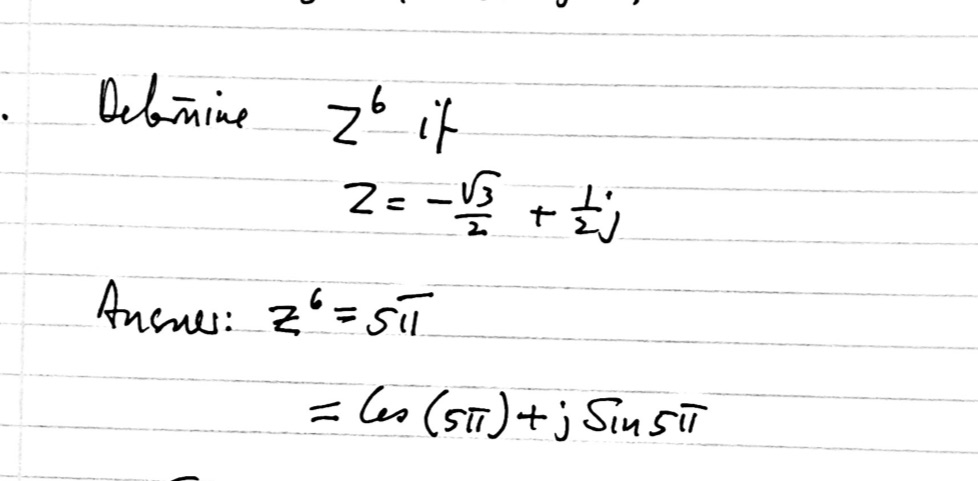 . Determine Z⁶ if
Z = -√3/2 + 1/2 j
Answer: Z⁶ = 5π
= Cos (5π) + j Sin 5π